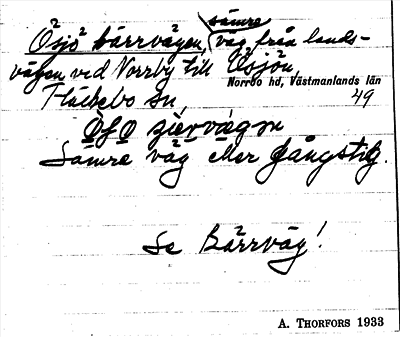 Ösjö kärrvägen, sämre väg från lands-
vägen vid Norrby till Ösjön,
Norrbo hd, Västmanlands län
Fläckebo sn, 49
Sämre väg eller gångstig.
Se Kärrväg!
A. THORFORS 1933